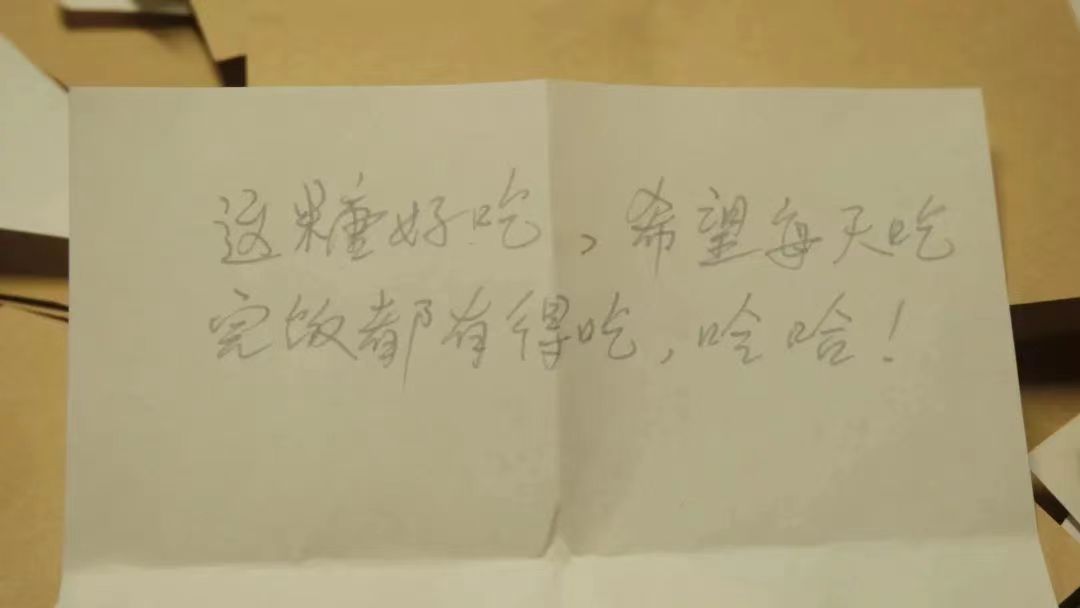 这糖好吃，希望每天吃
完饭都有得吃，哈哈！